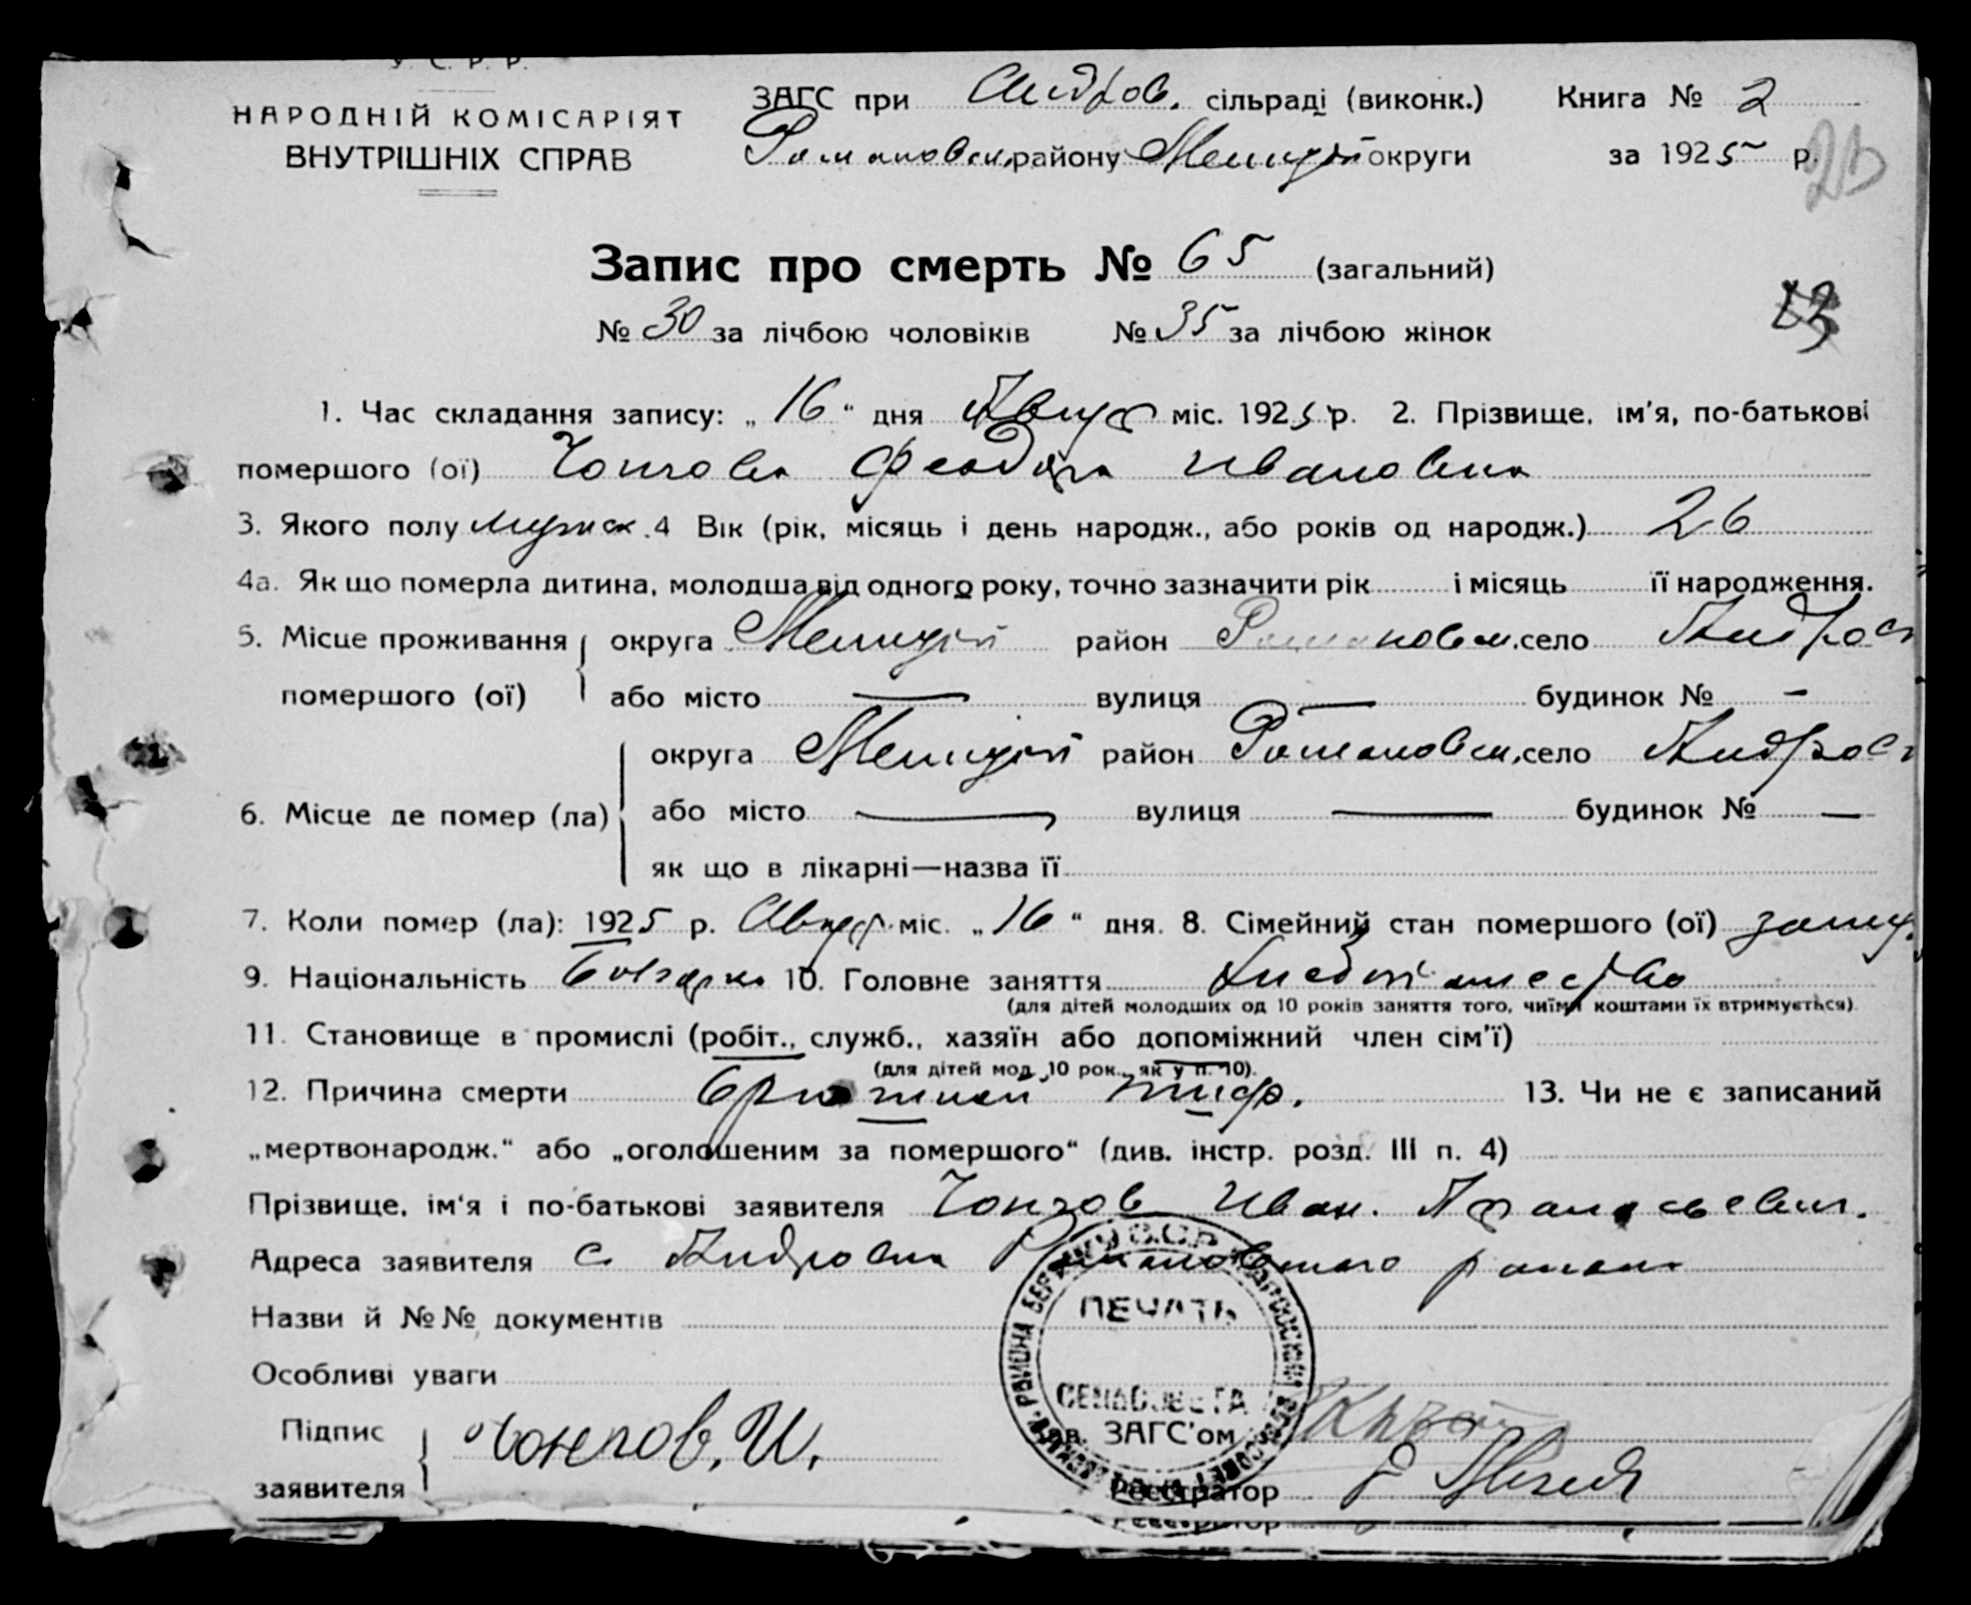 У. С. Р. Р.
НАРОДНІЙ КОМІСАРІЯТ
ВНУТРІШНІХ СПРАВ
ЗАГС при Андров. сільраді (виконк.) Книга № 2
Романовск. району Мелит. округи за 1925 р.
Запис про смерть № 65 (загальний)
№ 30 за лічбою чоловіків № 35 за лічбою жінок
1. Час складання запису: „16“ дня Август міс. 1925 р. 2. Прізвище, ім'я, по-батькові
помершого (ої) Чонгова Феодора Ивановна
3. Якого полу 4 Вік (рік, місяць і день народж., або років од народж.) 26
4а. Як що померла дитина, молодша від одного року, точно зазначити рік і місяць її народження.
5. Місце проживання помершого (ої) округа Мелит. район Романовск. село Андров
або місто — вулиця — будинок № –
6. Місце де помер (ла) округа Мелит. район Романовск. село Андров
або місто — вулиця — будинок № —
як що в лікарні—назва її
7. Коли помер (ла): 1925 р. Август міс. „16“ дня. 8. Сімейний стан помершого (ої) замуж.
9. Національність Болгарка 10. Головне заняття Хлебопашество
(для дітей молодших од 10 років заняття того, чиїми коштами їх втримується).
11. Становище в промислі (робіт., служб., хазяїн або допоміжний член сім'ї)
(для дітей мод. 10 рок., як у п. 10).
12. Причина смерти Брюшной тиф. 13. Чи не є записаний
„мертвонародж.“ або „оголошеним за помершого“ (див. інстр. розд. III п. 4)
Прізвище, ім'я і по-батькові заявителя Чонгов Иван. Афанасьевич.
Адреса заявителя с Андровка Романовского района
Назви й №№ документів
Особливі уваги
Підпис заявителя Чонгов. И.
ПЕЧАТЬ
СЕЛЬСОВЕТА
Зав. ЗАГС'ом
Реєстратор